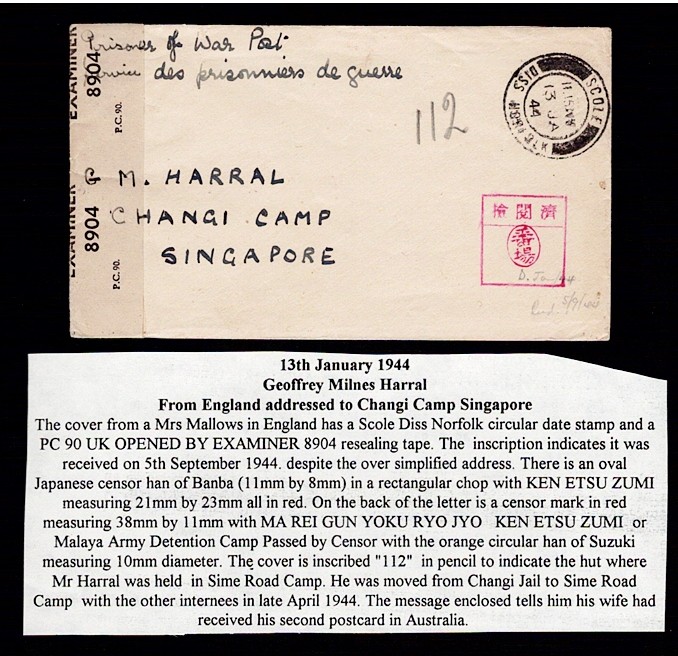 Prisoner of War Post
Service des prisonniers de guerre
EXAMINER 8904
P.C. 90.
EXAMINER 8904
P.C. 90.
SCOLE
DISS
11.15 AM
13 JA
44
112
G M. HARRAL
CHANGI CAMP
SINGAPORE
濟閲檢
番場
D. Jan/44
5/9/44
13th January 1944
Geoffrey Milnes Harral
From England addressed to Changi Camp Singapore
The cover from a Mrs Mallows in England has a Scole Diss Norfolk circular date stamp and a
PC 90 UK OPENED BY EXAMINER 8904 resealing tape. The inscription indicates it was
received on 5th September 1944. despite the over simplified address. There is an oval
Japanese censor han of Banba (11mm by 8mm) in a rectangular chop with KEN ETSU ZUMI
measuring 21mm by 23mm all in red. On the back of the letter is a censor mark in red
measuring 38mm by 11mm with MA REI GUN YOKU RYO JYO KEN ETSU ZUMI or
Malaya Army Detention Camp Passed by Censor with the orange circular han of Suzuki
measuring 10mm diameter. The cover is inscribed "112" in pencil to indicate the hut where
Mr Harral was held in Sime Road Camp. He was moved from Changi Jail to Sime Road
Camp with the other internees in late April 1944. The message enclosed tells him his wife had
received his second postcard in Australia.